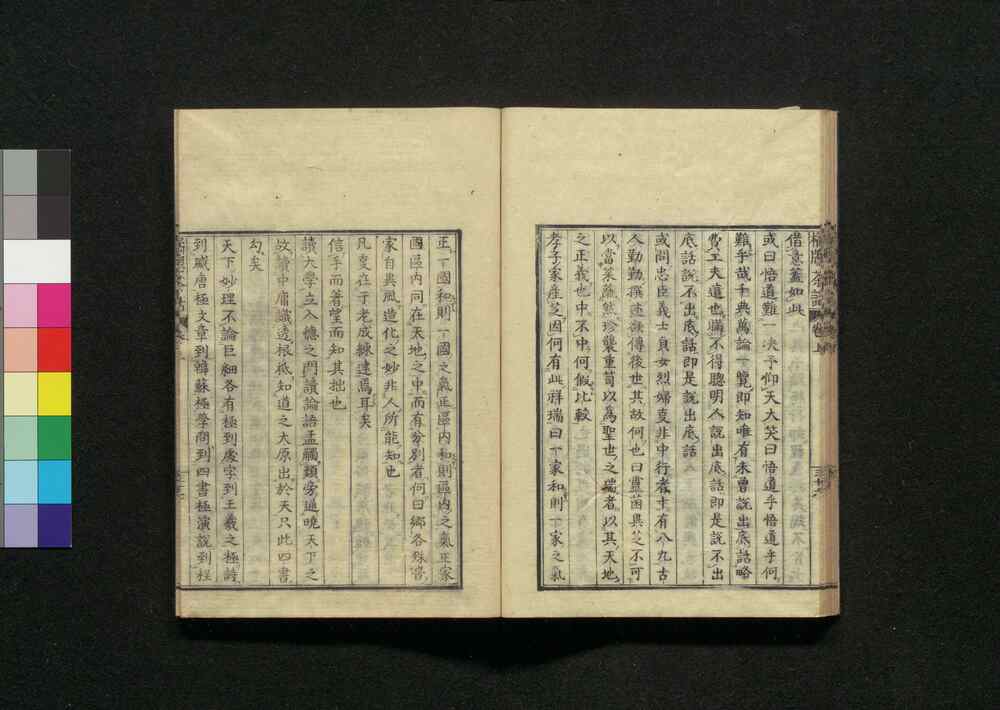 借意蓋如此
或曰悟道難一決乎仰天大笑曰悟道乎悟道乎何
難乎哉千典萬論一覽即知唯有未曾說出底話略
費工夫遠也瞞不得聰明人說出底話即是說不出
底話說不出底話即是說出底話
或問忠臣義士貞女烈婦豈非中行者十有八九古
人勤勤撰述領傳後世其故何也曰靈菌異芝不可
以當菜蔬然珍襲重荀以為聖世之瑞者以其天地
之正義也中不中何假比較
孝子家産芝因何有此祥瑞曰一家和則一家之氣
正一國和則一國之氣正區內和則區內之氣正家
國區內同在天地之中而有分別者何曰鄉各殊俗
家自異風造化之妙非人所能知也
凡事在于老成練達焉耳矣
信手而著望而知其拙也
讀大學立入德之門讀論語孟觸類旁通曉天下之
故讀中庸識透根柢知道之大原出於天只此四書
勾矣
天下妙理不論巨細各有極到處字到王羲之極詩
到盛唐極文章到韓蘇極學問到四書極演說到程